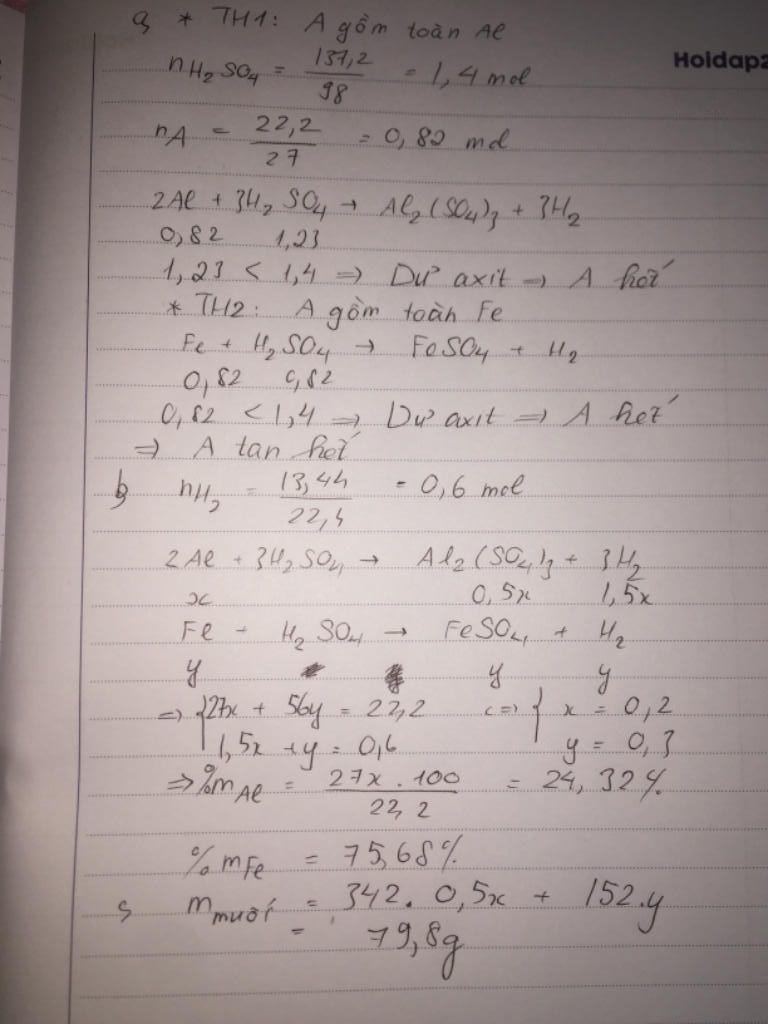 a, * TH1: A gồm toàn Al
Holdap2
nH2SO4 = 137,2/98 = 1,4 mol
nA = 22,2/27 = 0,82 mol
2Al + 3H2SO4 → Al2(SO4)3 + 3H2
0,82 1,23
1,23 < 1,4 => Dư axit => A hết
* TH2: A gồm toàn Fe
Fe + H2SO4 → FeSO4 + H2
0,82 0,82
0,82 < 1,4 => Dư axit => A hết
=> A tan hết
b, nH2 = 13,44/22,4 = 0,6 mol
2Al + 3H2SO4 → Al2(SO4)3 + 3H2
x 0,5x 1,5x
Fe + H2SO4 → FeSO4 + H2
y y y
=> { 27x + 56y = 22,2 <=> { x = 0,2
1,5x + y = 0,6 y = 0,3
=> %mAl = 27x . 100/22,2 = 24,32%
%mFe = 75,68%
c, mmuối = 342. 0,5x + 152.y
= 79,8g